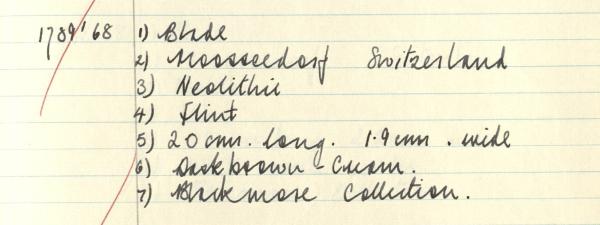 1789'68 1) Blade
2) Moosseedorf Switzerland
3) Neolithic
4) Flint
5) 20cm. long. 1.9cm. wide
6) Darkbrown - Cream.
7) Blackmore Collection.